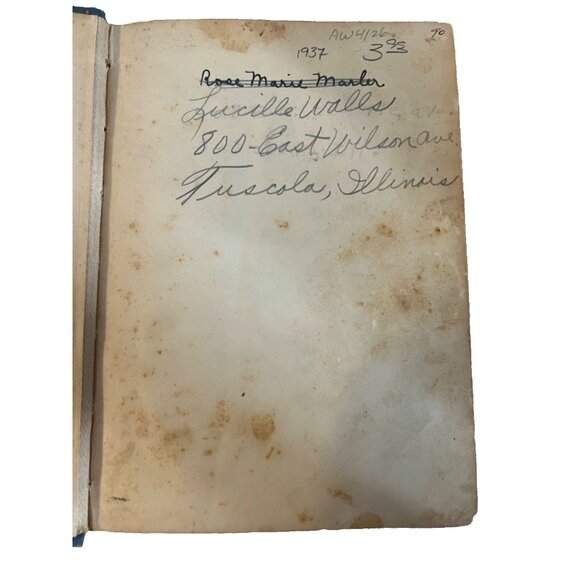 AW4126
90
1937
3 95
Rose Marie Marler
Lucille Walls
800-East Wilson ave
Tuscola, Illinois